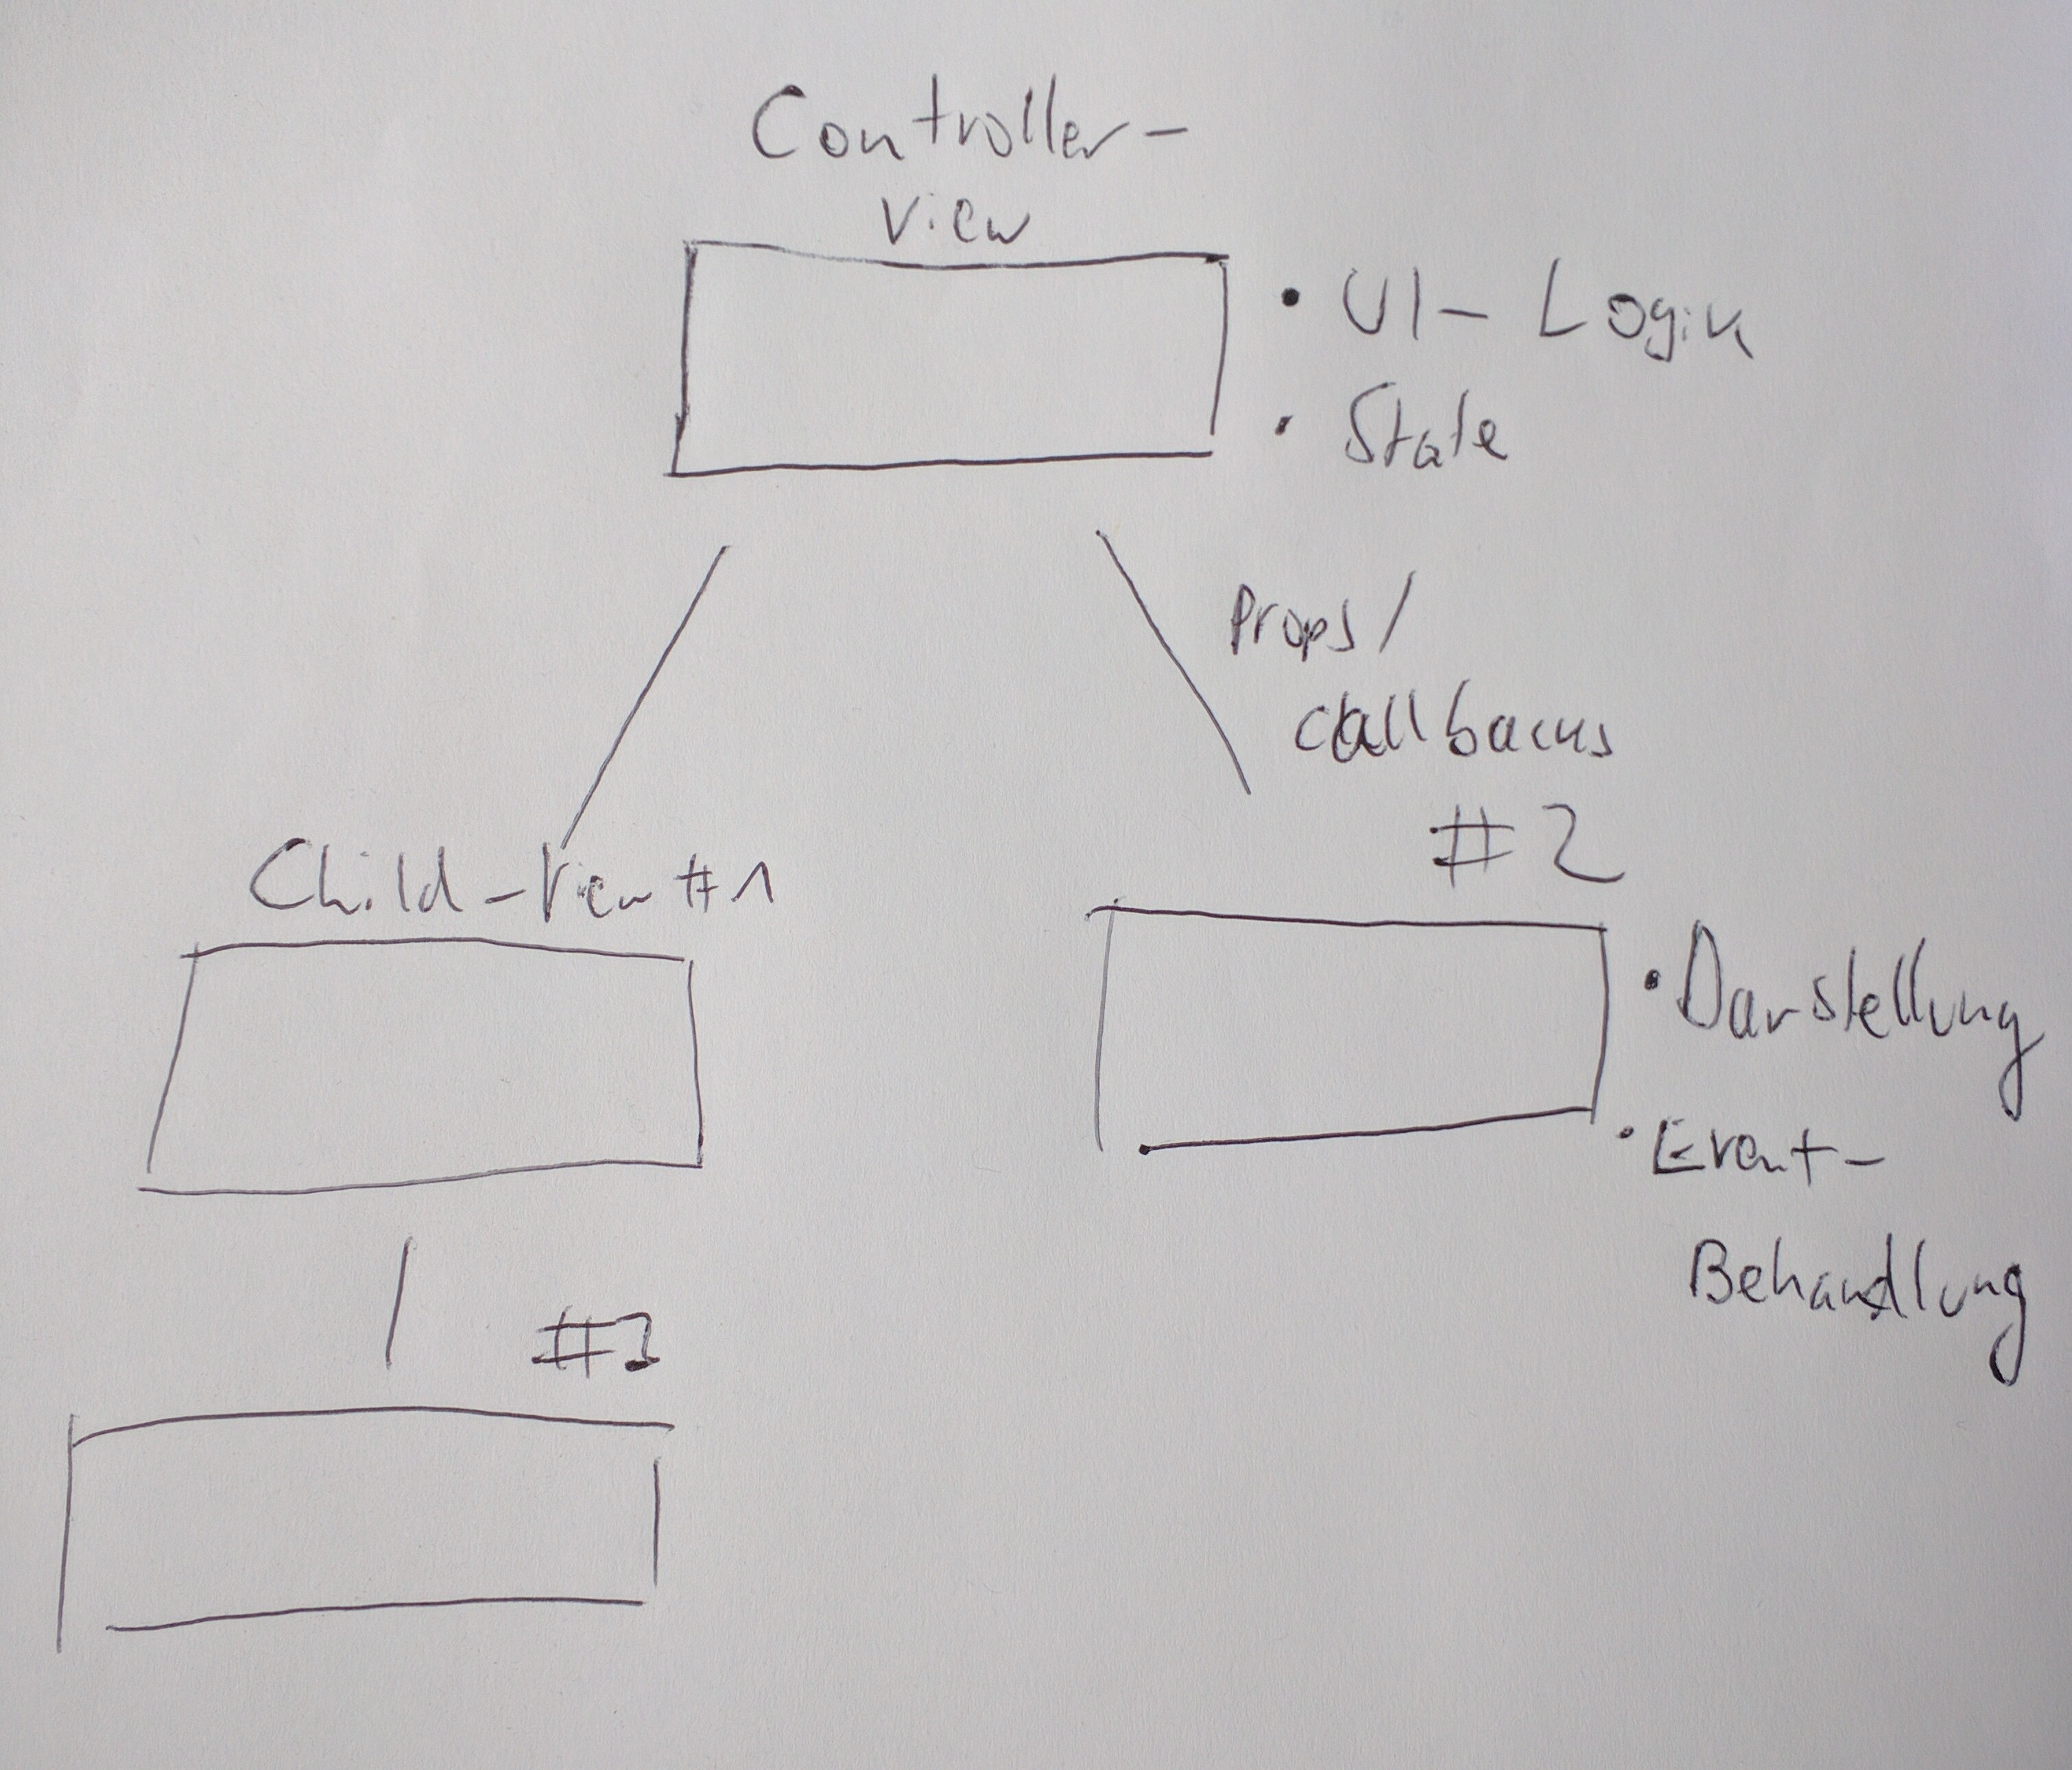 Controller-
View
• UI- Logik
• State
Props/
Callbacks
#2
Child-View #1
• Darstellung
• Event-
Behandlung
#3